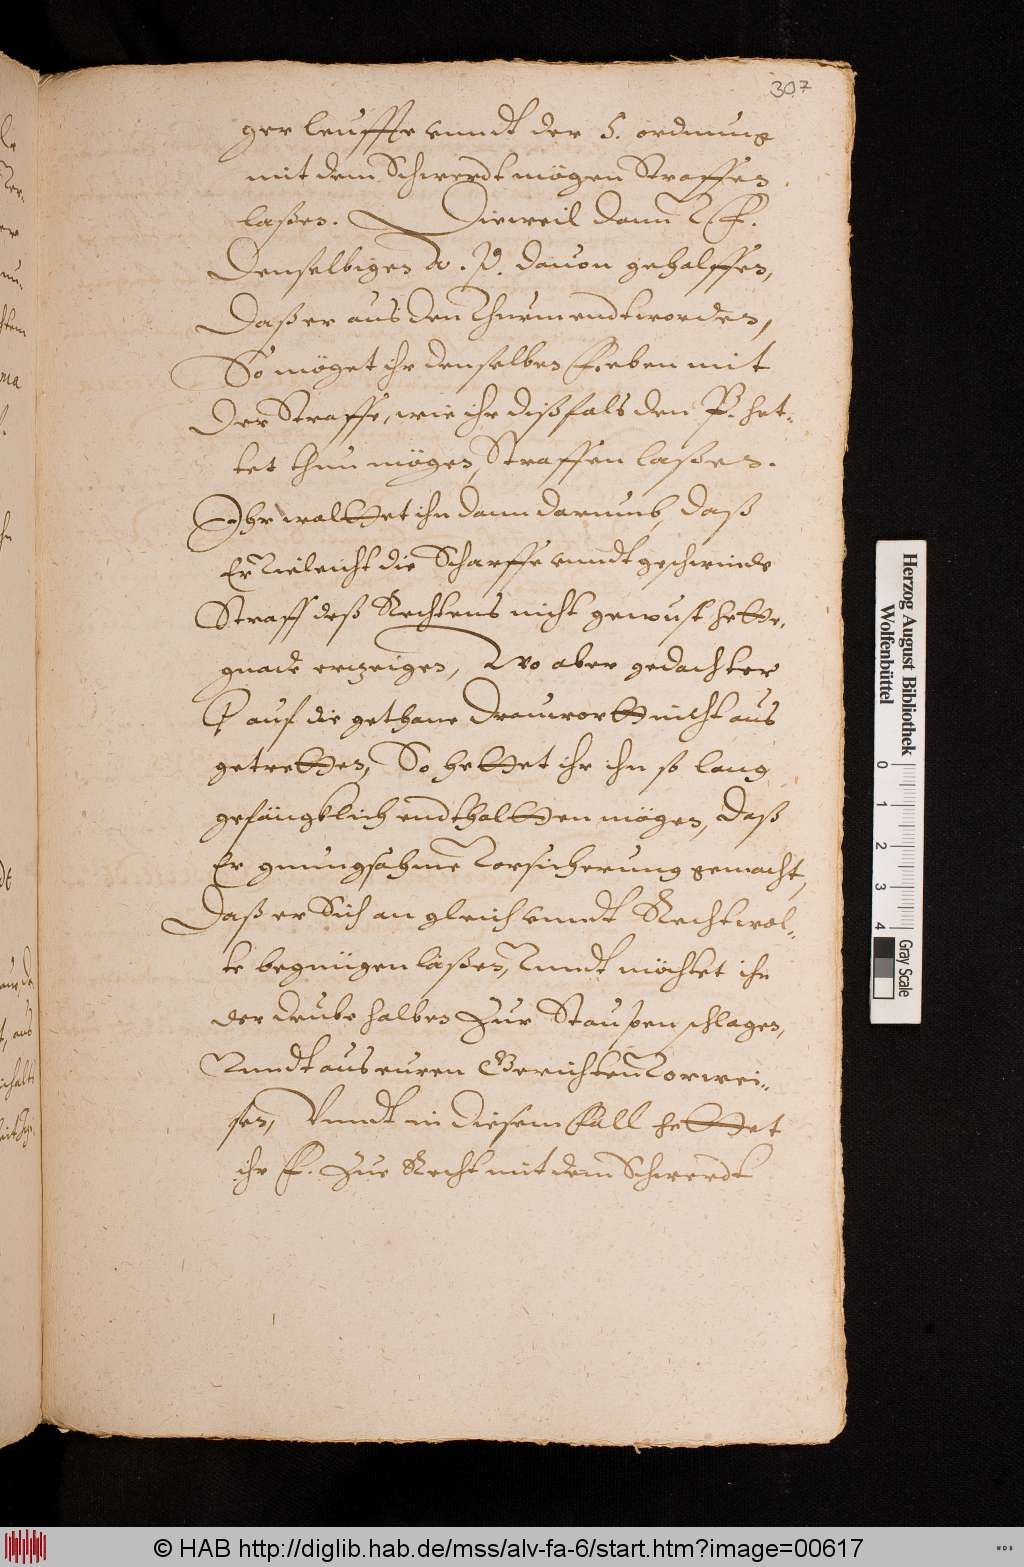 307
ger leuffte vnndt der S. ordnung
mit dem Schwerdt mögen Straffen
laßen. Dieweil dann F.
Denselbigen P. dauon geholffen,
Daß er aus den Thurm endtworden,
So möget ihr denselben F. eben mit
Der Straffe, wie ihr dißfals den P. het-
tet thun mögen, Straffen laßen.
Ihr woltet ihn dann darumb, daß
Er Vieleicht die Scharffe vnndt geschwinde
Straff deß Rechtens nicht gewust hette,
gnade erzeigen, Wo aber gedachter
P auf die gethane Drauwortt nicht aus
getretten, So hettet ihr ihn so lang
gefängklich endthaltten mögen, Daß
Er gnungsahme Vorsicherung gemacht,
Daß er Sich an gleich vnndt Recht wol-
te begnügen laßen, Vnndt möchtet ihn
der deube halben Zur Staupen schlagen,
Vnndt aus euren Gerichten Vorwei-
sen, Vnndt in diesem Fall hettet
ihr F. Zue Recht mit dem Schwerdt
Herzog August Bibliothek
Wolfenbüttel
0 1 2 3 4
Gray Scale
© HAB http://diglib.hab.de/mss/alv-fa-6/start.htm?image=00617